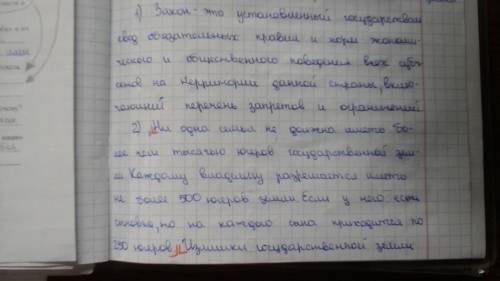 1) Закон - это установленный государством
свод обязательных правил и норм экономи-
ческого и общественного поведения всех субъ-
ектов на территории данной страны, вклю-
чающий перечень запретов и ограничений
2) "Ни одна семья не должна иметь бо-
лее чем тысячью югеров государственной зем-
ли Каждому владельцу разрешается иметь
не более 500 югеров земли Если у него есть
сыновья, то на каждого сына приходится по
250 югеров" Излишки государственной земли